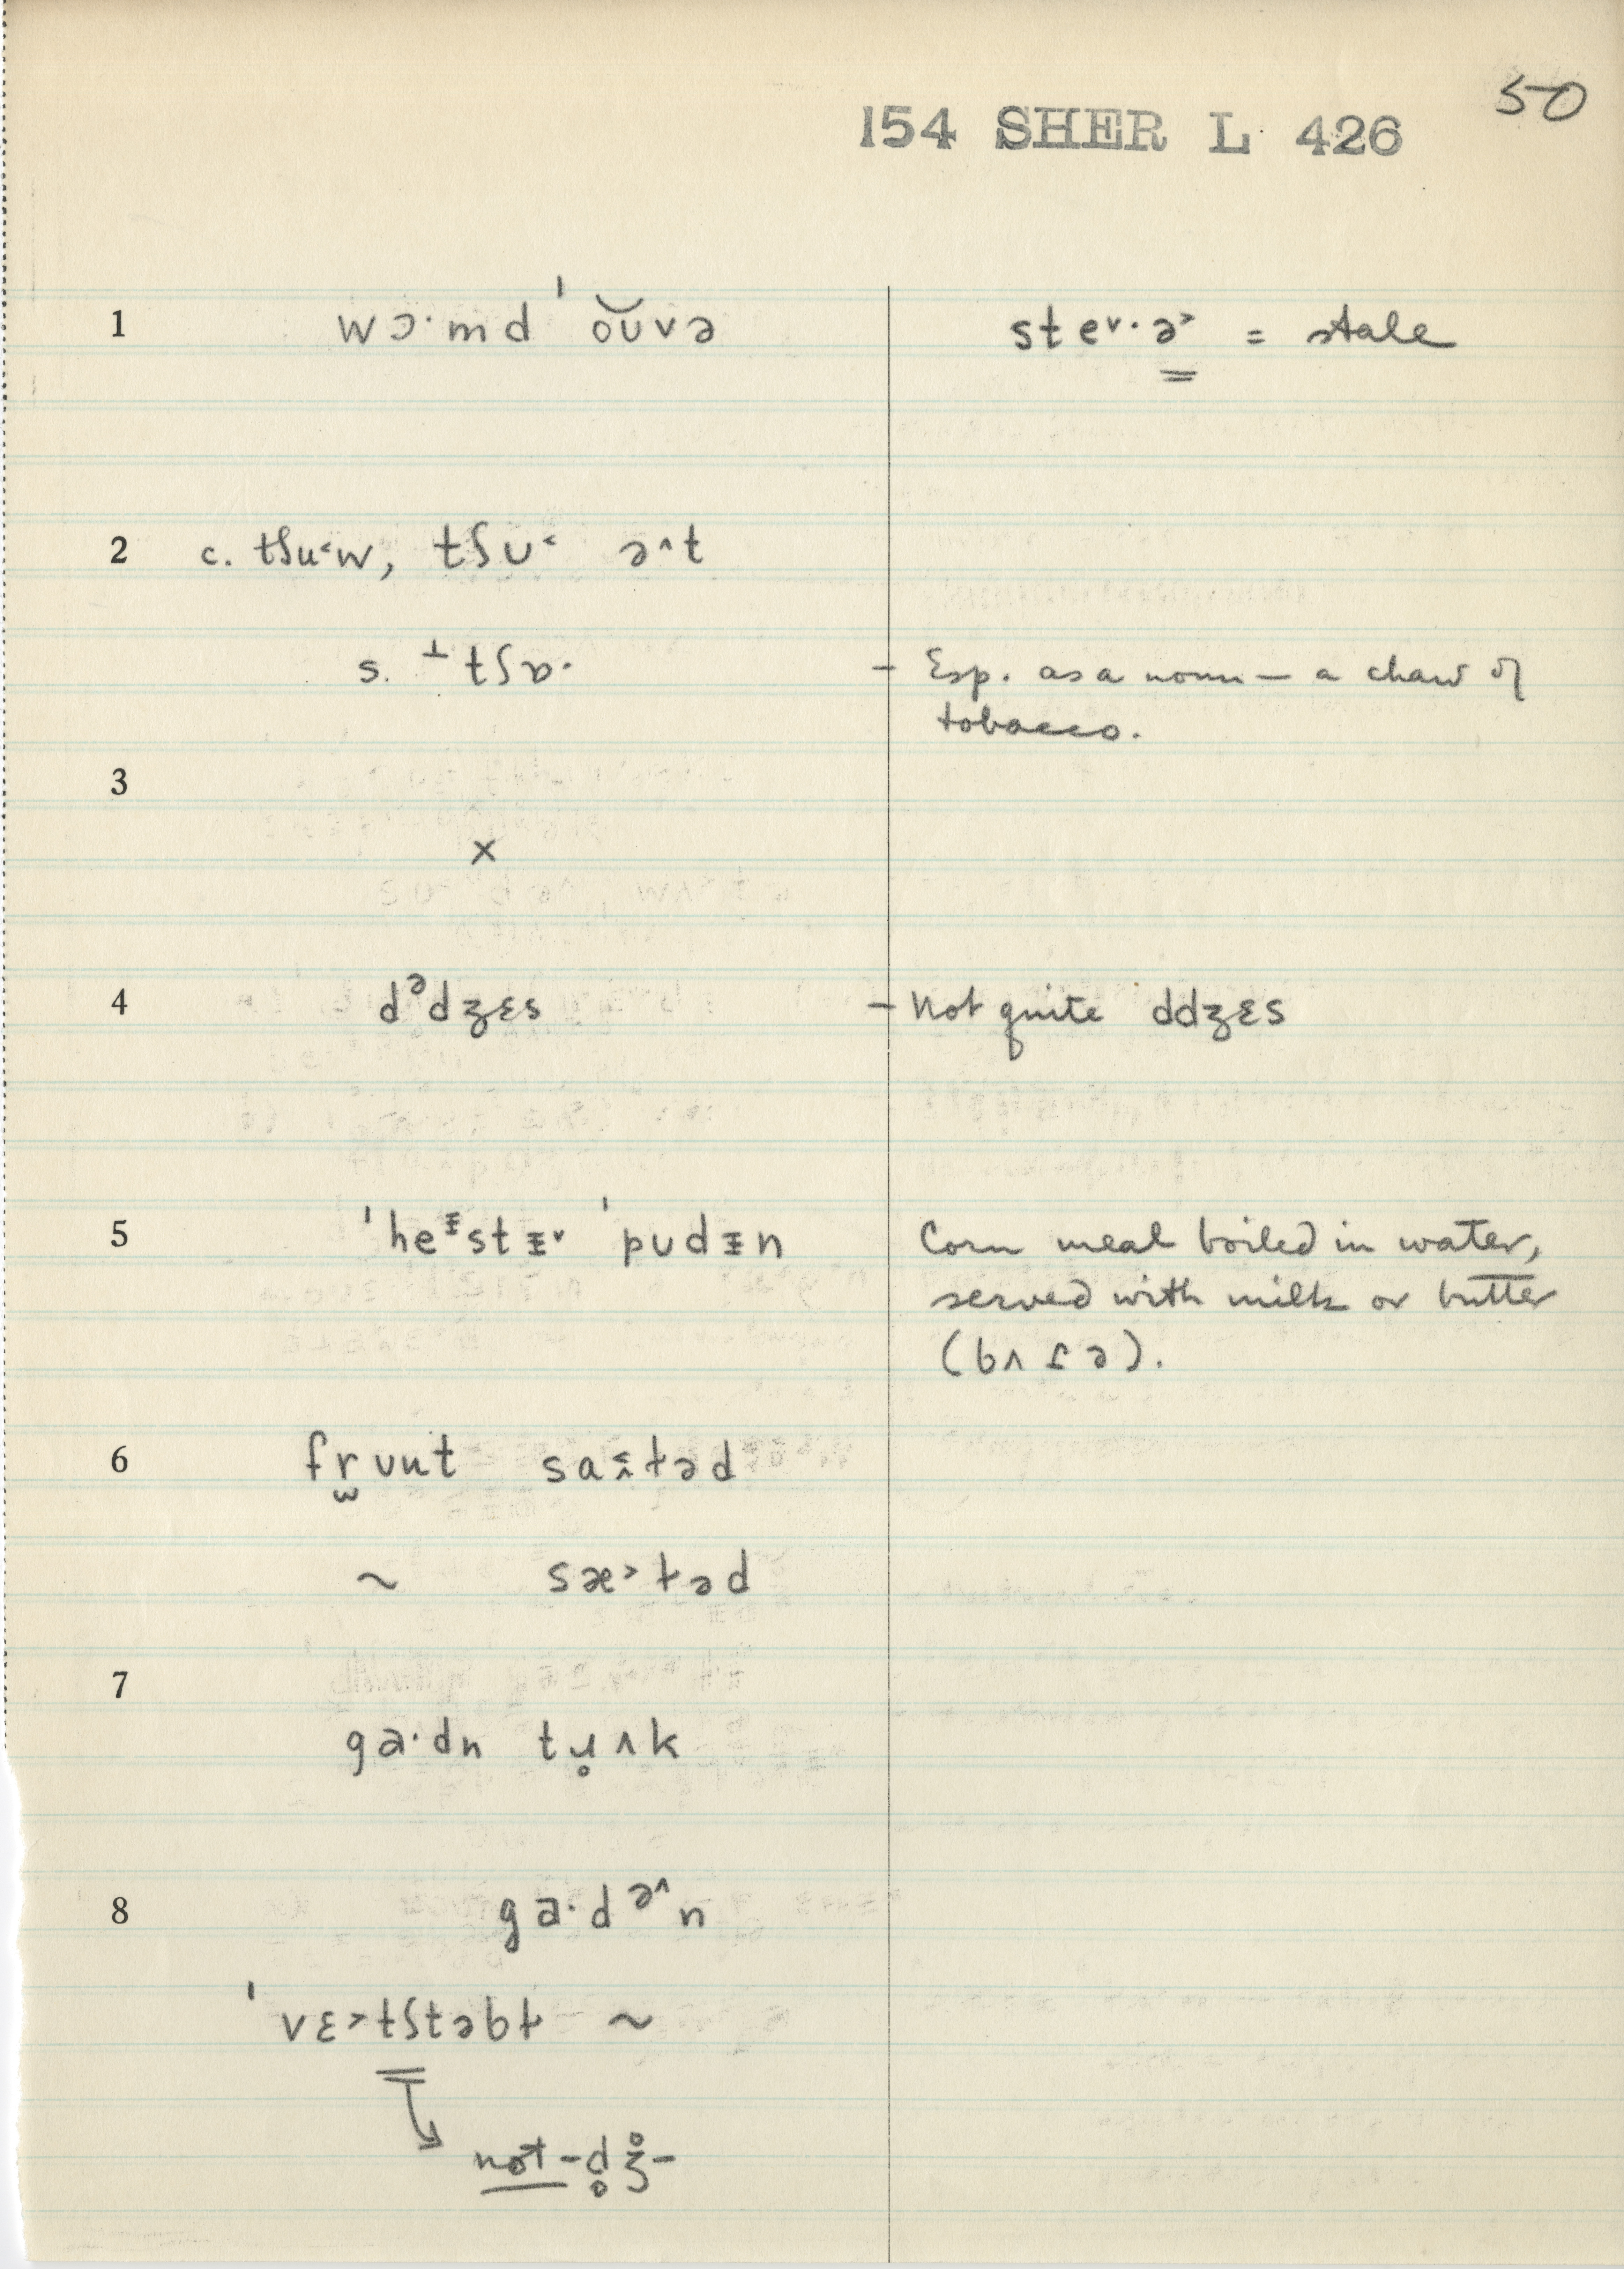 50
154 SHER L 426
1 wɔ·md ˈo͝uvə steᵛ·ə˃ = stale
2 c. tʃu˂w, tʃu˂ ə^t
s. ⊥tʃɒ· – Esp. as a noun – a chaw of
tobacco.
3
×
4 dᵊdʒɛs – Not quite ddʒɛs
5 ˈheᵻstᵻ˅ ˈpudᵻn Corn meal boiled in water,
served with milk or butter
(bʌɾə).
6 fr̫uut ɫəd
~ sæ˃ɫəd
7
ga·dn tɹ̥ʌk
8 ga·də^n
ˈvɛ˃tʃtəbɫ ~
not -d̥ʒ̊-